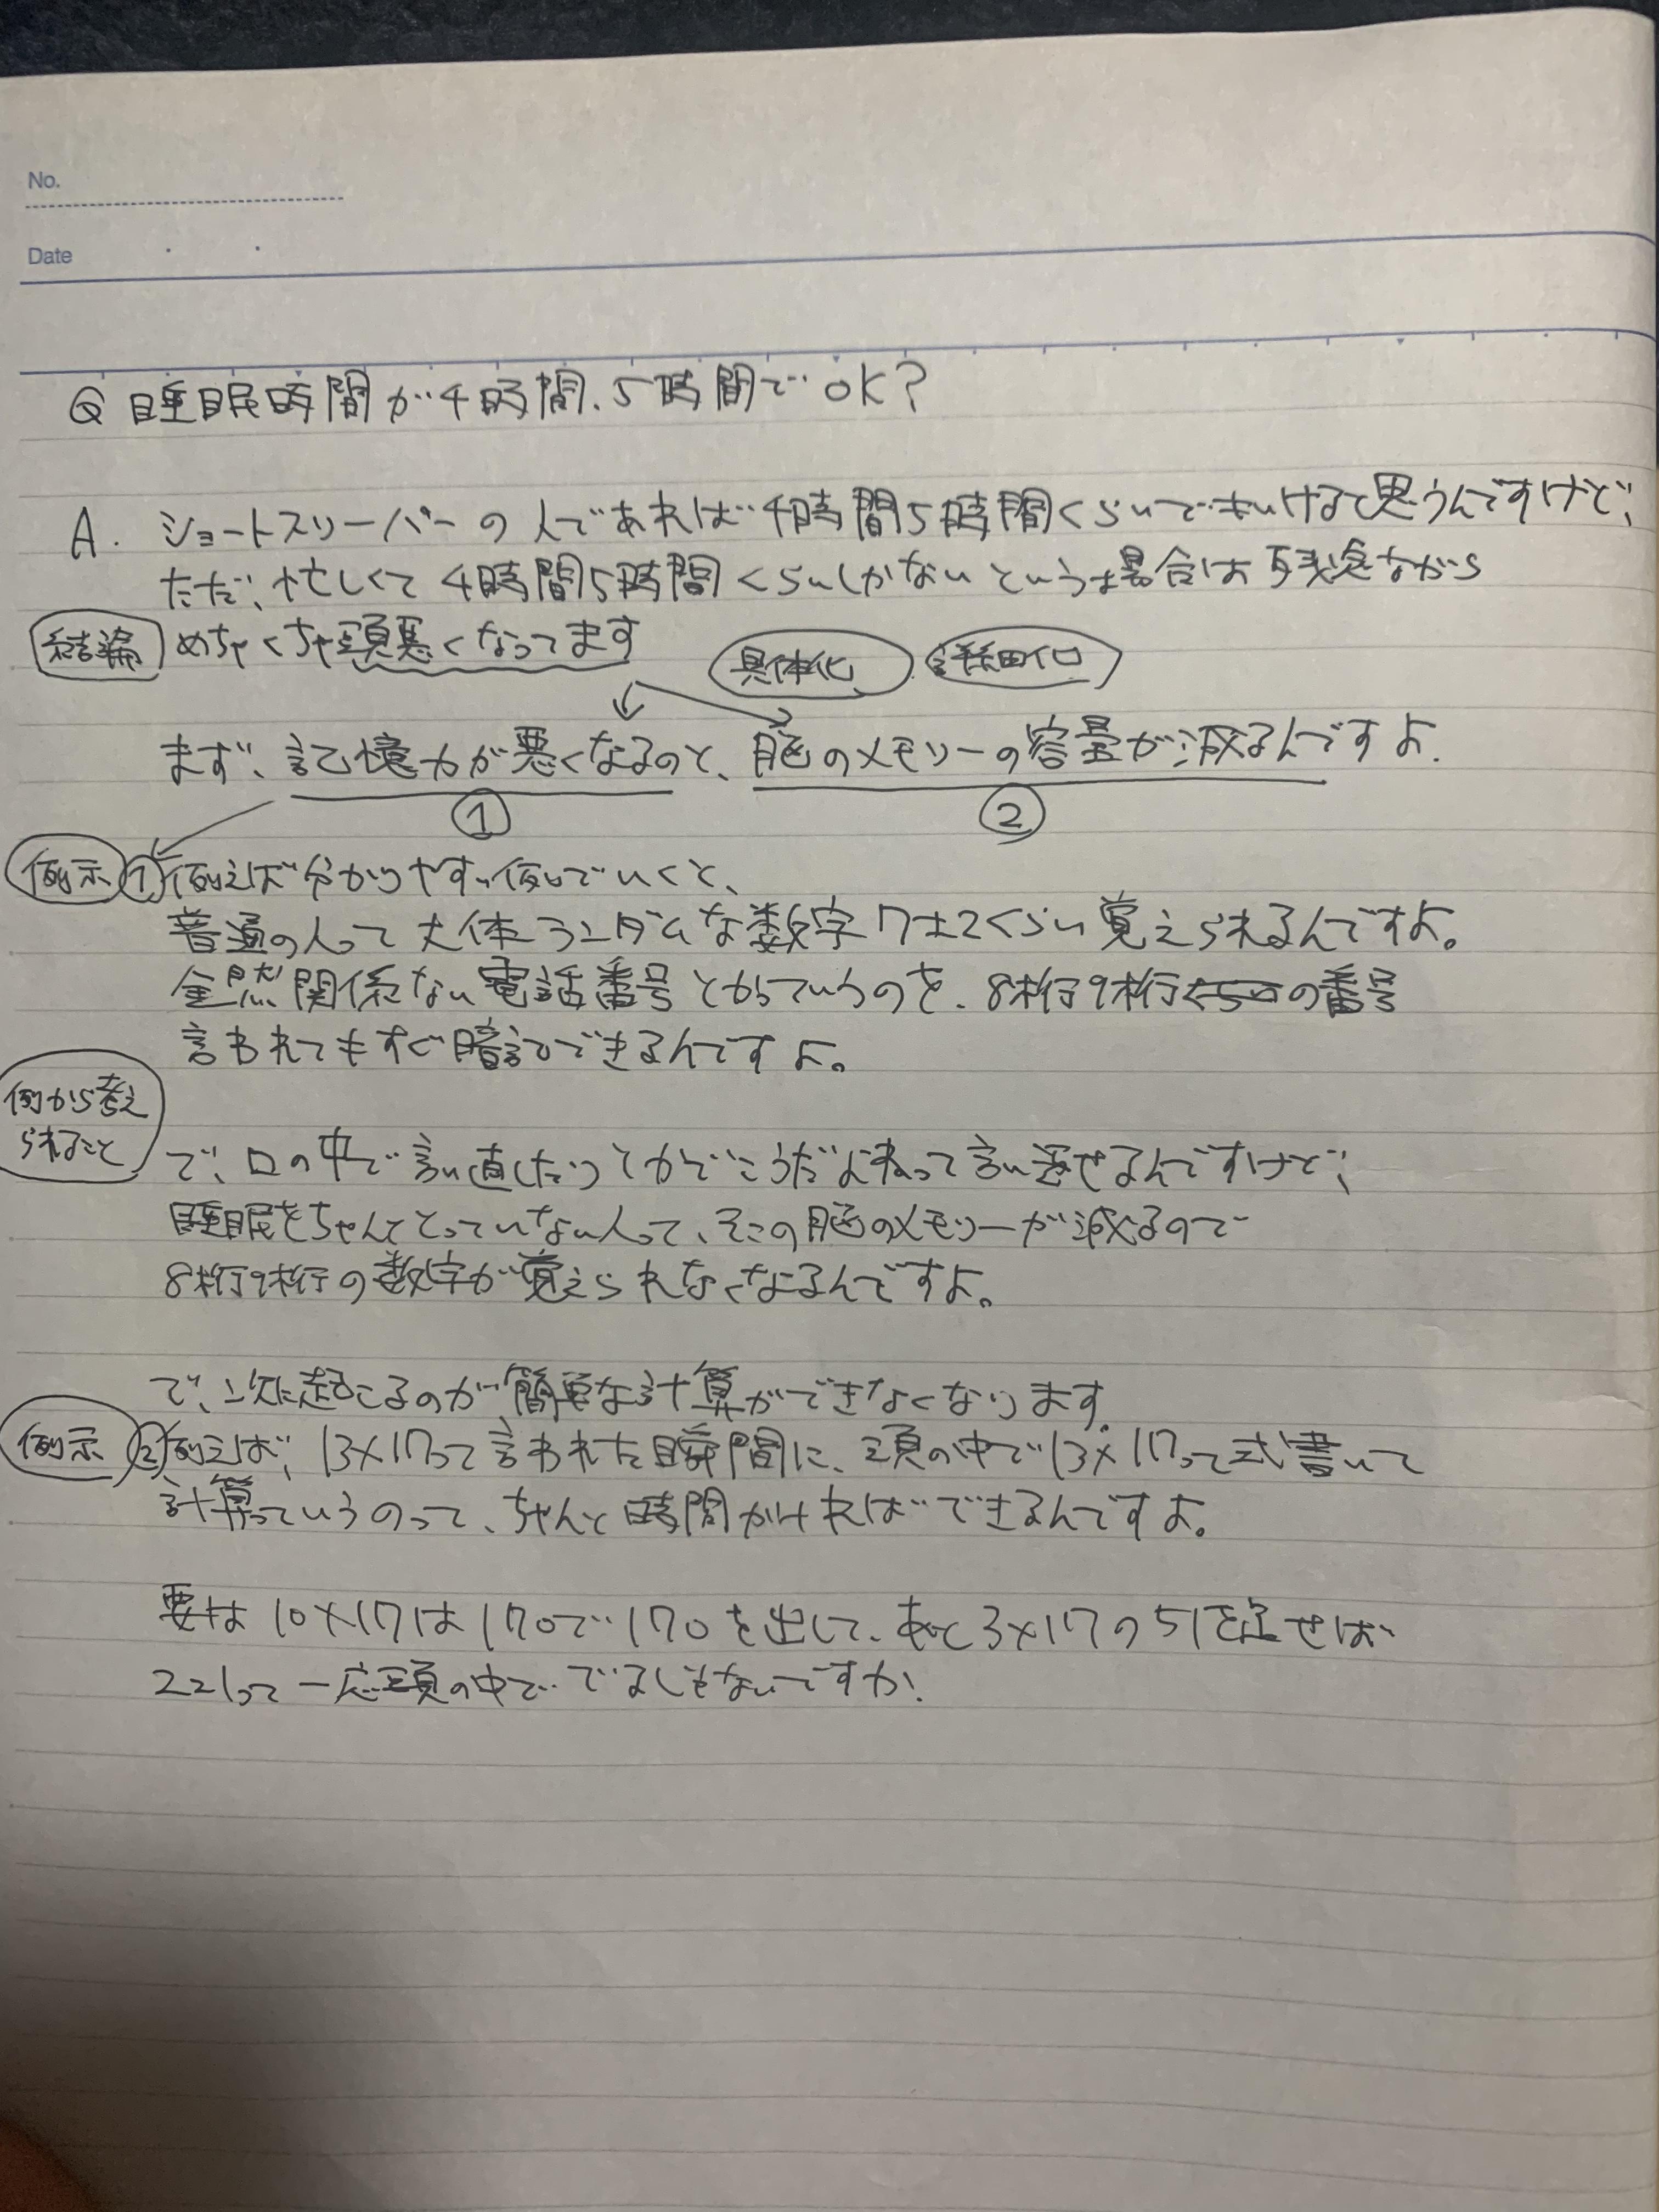 No.
Date
Q 睡眠時間が4時間、5時間でOK?
A. ショートスリーパーの人であれば4時間5時間くらいでもいけると思うんですけど、
ただ、忙しくて4時間5時間くらいしかないという場合は残念ながら
結論 めちゃくちゃ頭悪くなってます
具体化 詳細化
まず、記憶力が悪くなるのと、脳のメモリーの容量が減るんですよ.
① ②
例示 ① 例えば分かりやすい例でいくと、
普通の人って大体ランダムな数字7±2くらい覚えられるんですよ。
全然関係ない電話番号とかっていうのを、8桁9桁の番号
言われてもすぐ暗記できるんですよ。
例から考え
られること
で、口の中で言い直したりとかでこうだよねって言い返せるんですけど、
睡眠をちゃんととっていない人って、そこの脳のメモリーが減るので
8桁9桁の数字が覚えられなくなるんですよ。
で、次に起こるのが、簡単な計算ができなくなります.
例示 ② 例えば、13×17って言われた瞬間に、頭の中で13×17って式書いて
計算っていうのって、ちゃんと時間かければできるんですよ。
要は10×17は170で170を出して、あと3×17の51を足せば
221って一応頭の中ででるじゃないですか!